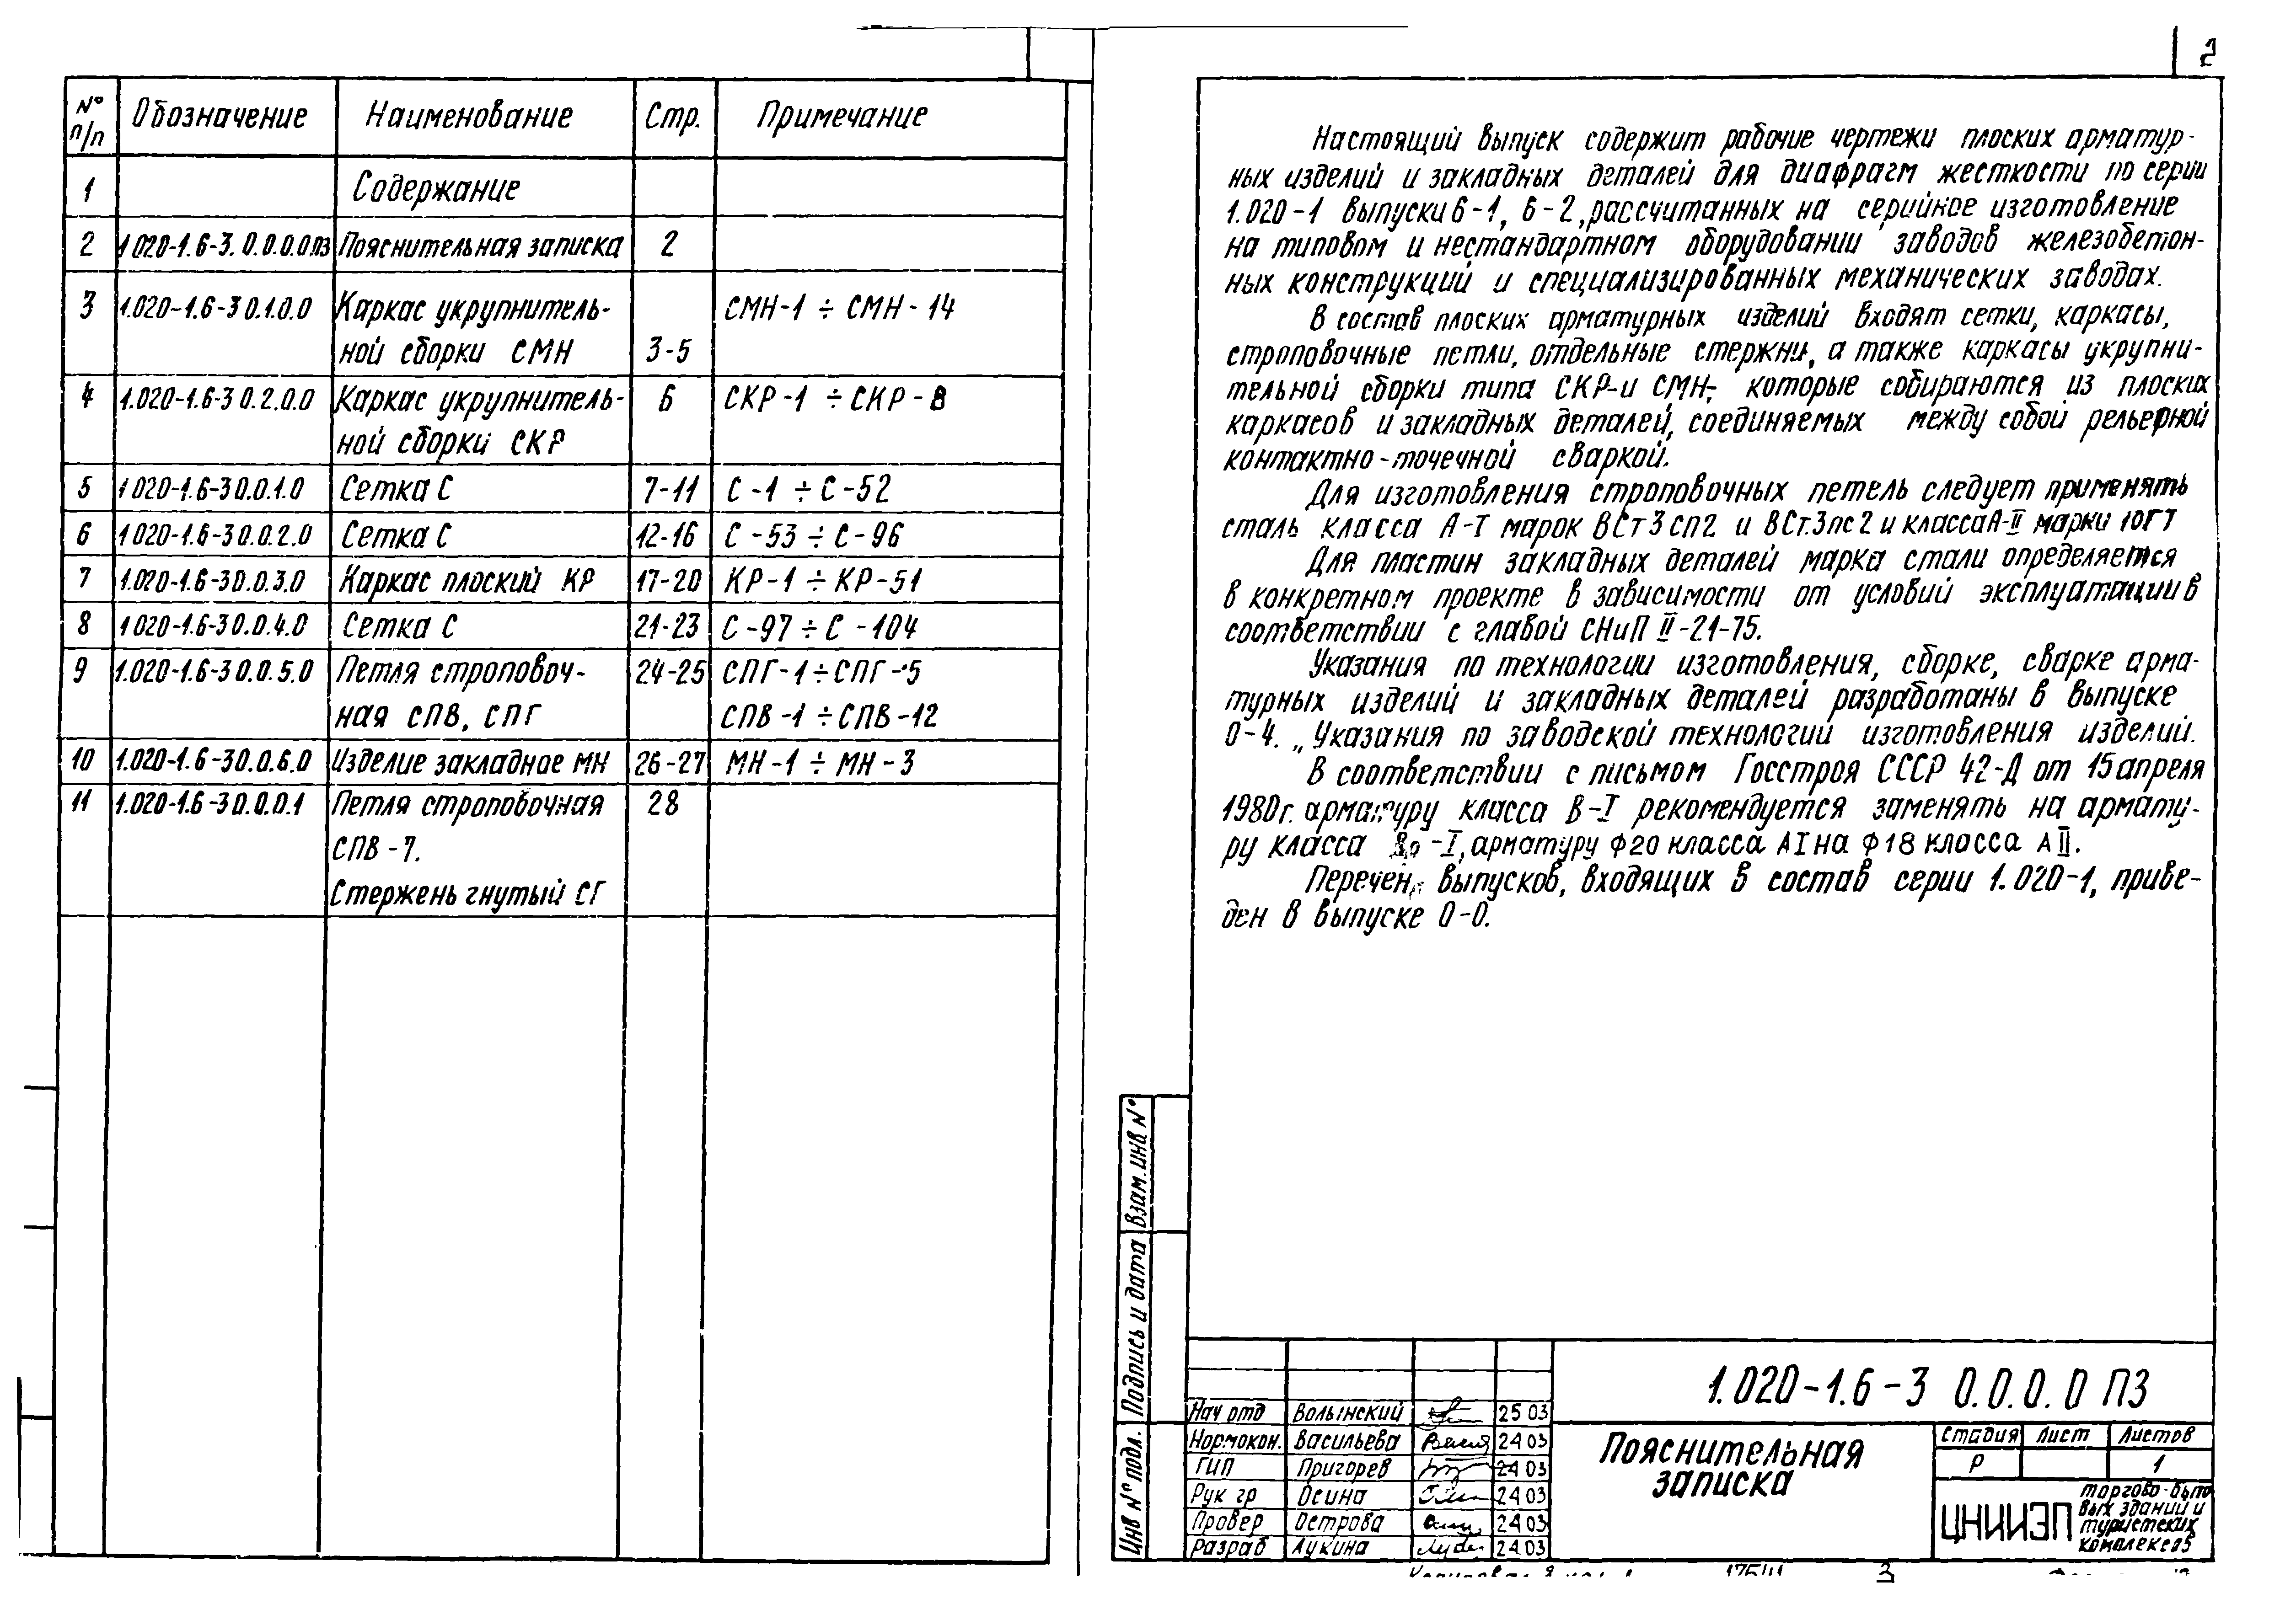 № п/п Обозначение Наименование Стр. Примечание
1 Содержание
2 1.020-1.6-3. 0.0.0.0ПЗ Пояснительная записка 2
3 1.020-1.6-3 0.1.0.0 Каркас укрупнитель- СМН-1 ÷ СМН-14
ной сборки СМН 3-5
4 1.020-1.6-3 0.2.0.0 Каркас укрупнитель- 6 СКР-1 ÷ СКР-8
ной сборки СКР
5 1.020-1.6-3 0.0.1.0 Сетка С 7-11 С-1 ÷ С-52
6 1.020-1.6-3 0.0.2.0 Сетка С 12-16 С-53 ÷ С-96
7 1.020-1.6-3 0.0.3.0 Каркас плоский КР 17-20 КР-1 ÷ КР-51
8 1.020-1.6-3 0.0.4.0 Сетка С 21-23 С-97 ÷ С-104
9 1.020-1.6-3 0.0.5.0 Петля строповоч- 24-25 СПГ-1 ÷ СПГ-5
ная СПВ, СПГ СПВ-1 ÷ СПВ-12
10 1.020-1.6-3 0.0.6.0 Изделие закладное МН 26-27 МН-1 ÷ МН-3
11 1.020-1.6-3 0.0.0.1 Петля строповочная 28
СПВ-7.
Стержень гнутый СГ
2
Настоящий выпуск содержит рабочие чертежи плоских арматур-
ных изделий и закладных деталей для диафрагм жесткости по серии
1.020-1 выпуски 6-1, 6-2, рассчитанных на серийное изготовление
на типовом и нестандартном оборудовании заводов железобетон-
ных конструкций и специализированных механических заводах.
В состав плоских арматурных изделий входят сетки, каркасы,
строповочные петли, отдельные стержни, а также каркасы укрупни-
тельной сборки типа СКР- и СМН-, которые собираются из плоских
каркасов и закладных деталей, соединяемых между собой рельефной
контактно-точечной сваркой.
Для изготовления строповочных петель следует применять
сталь класса А-I марок ВСт3сп2 и ВСт.3пс2 и класса А-II марки 10ГТ
Для пластин закладных деталей марка стали определяется
в конкретном проекте в зависимости от условий эксплуатации в
соответствии с главой СНиП II-21-75.
Указания по технологии изготовления, сборке, сварке арма-
турных изделий и закладных деталей разработаны в выпуске
0-4. „Указания по заводской технологии изготовления изделий.
В соответствии с письмом Госстроя СССР 42-Д от 15 апреля
1980г. арматуру класса В-I рекомендуется заменять на армату-
ру класса Вр-I, арматуру Ф20 класса АI на Ф18 класса АII.
Перечень выпусков, входящих в состав серии 1.020-1, приве-
ден в выпуске 0-0.
Взам. инв N°
Подпись и дата
Инв N° подл.
1.020-1.6-3 0.0.0.0 ПЗ
Нач отд Волынский 25 03
Нормокон. Васильева 24 03
ГИП Пригорев 24 03
Рук гр Осина 24 03
Провер Острова 24 03
Разраб Лукина 24 03
Пояснительная
записка
Стадия Лист Листов
Р 1
ЦНИИЭП
торгово-быто
вых зданий и
туристских
комплексов
3